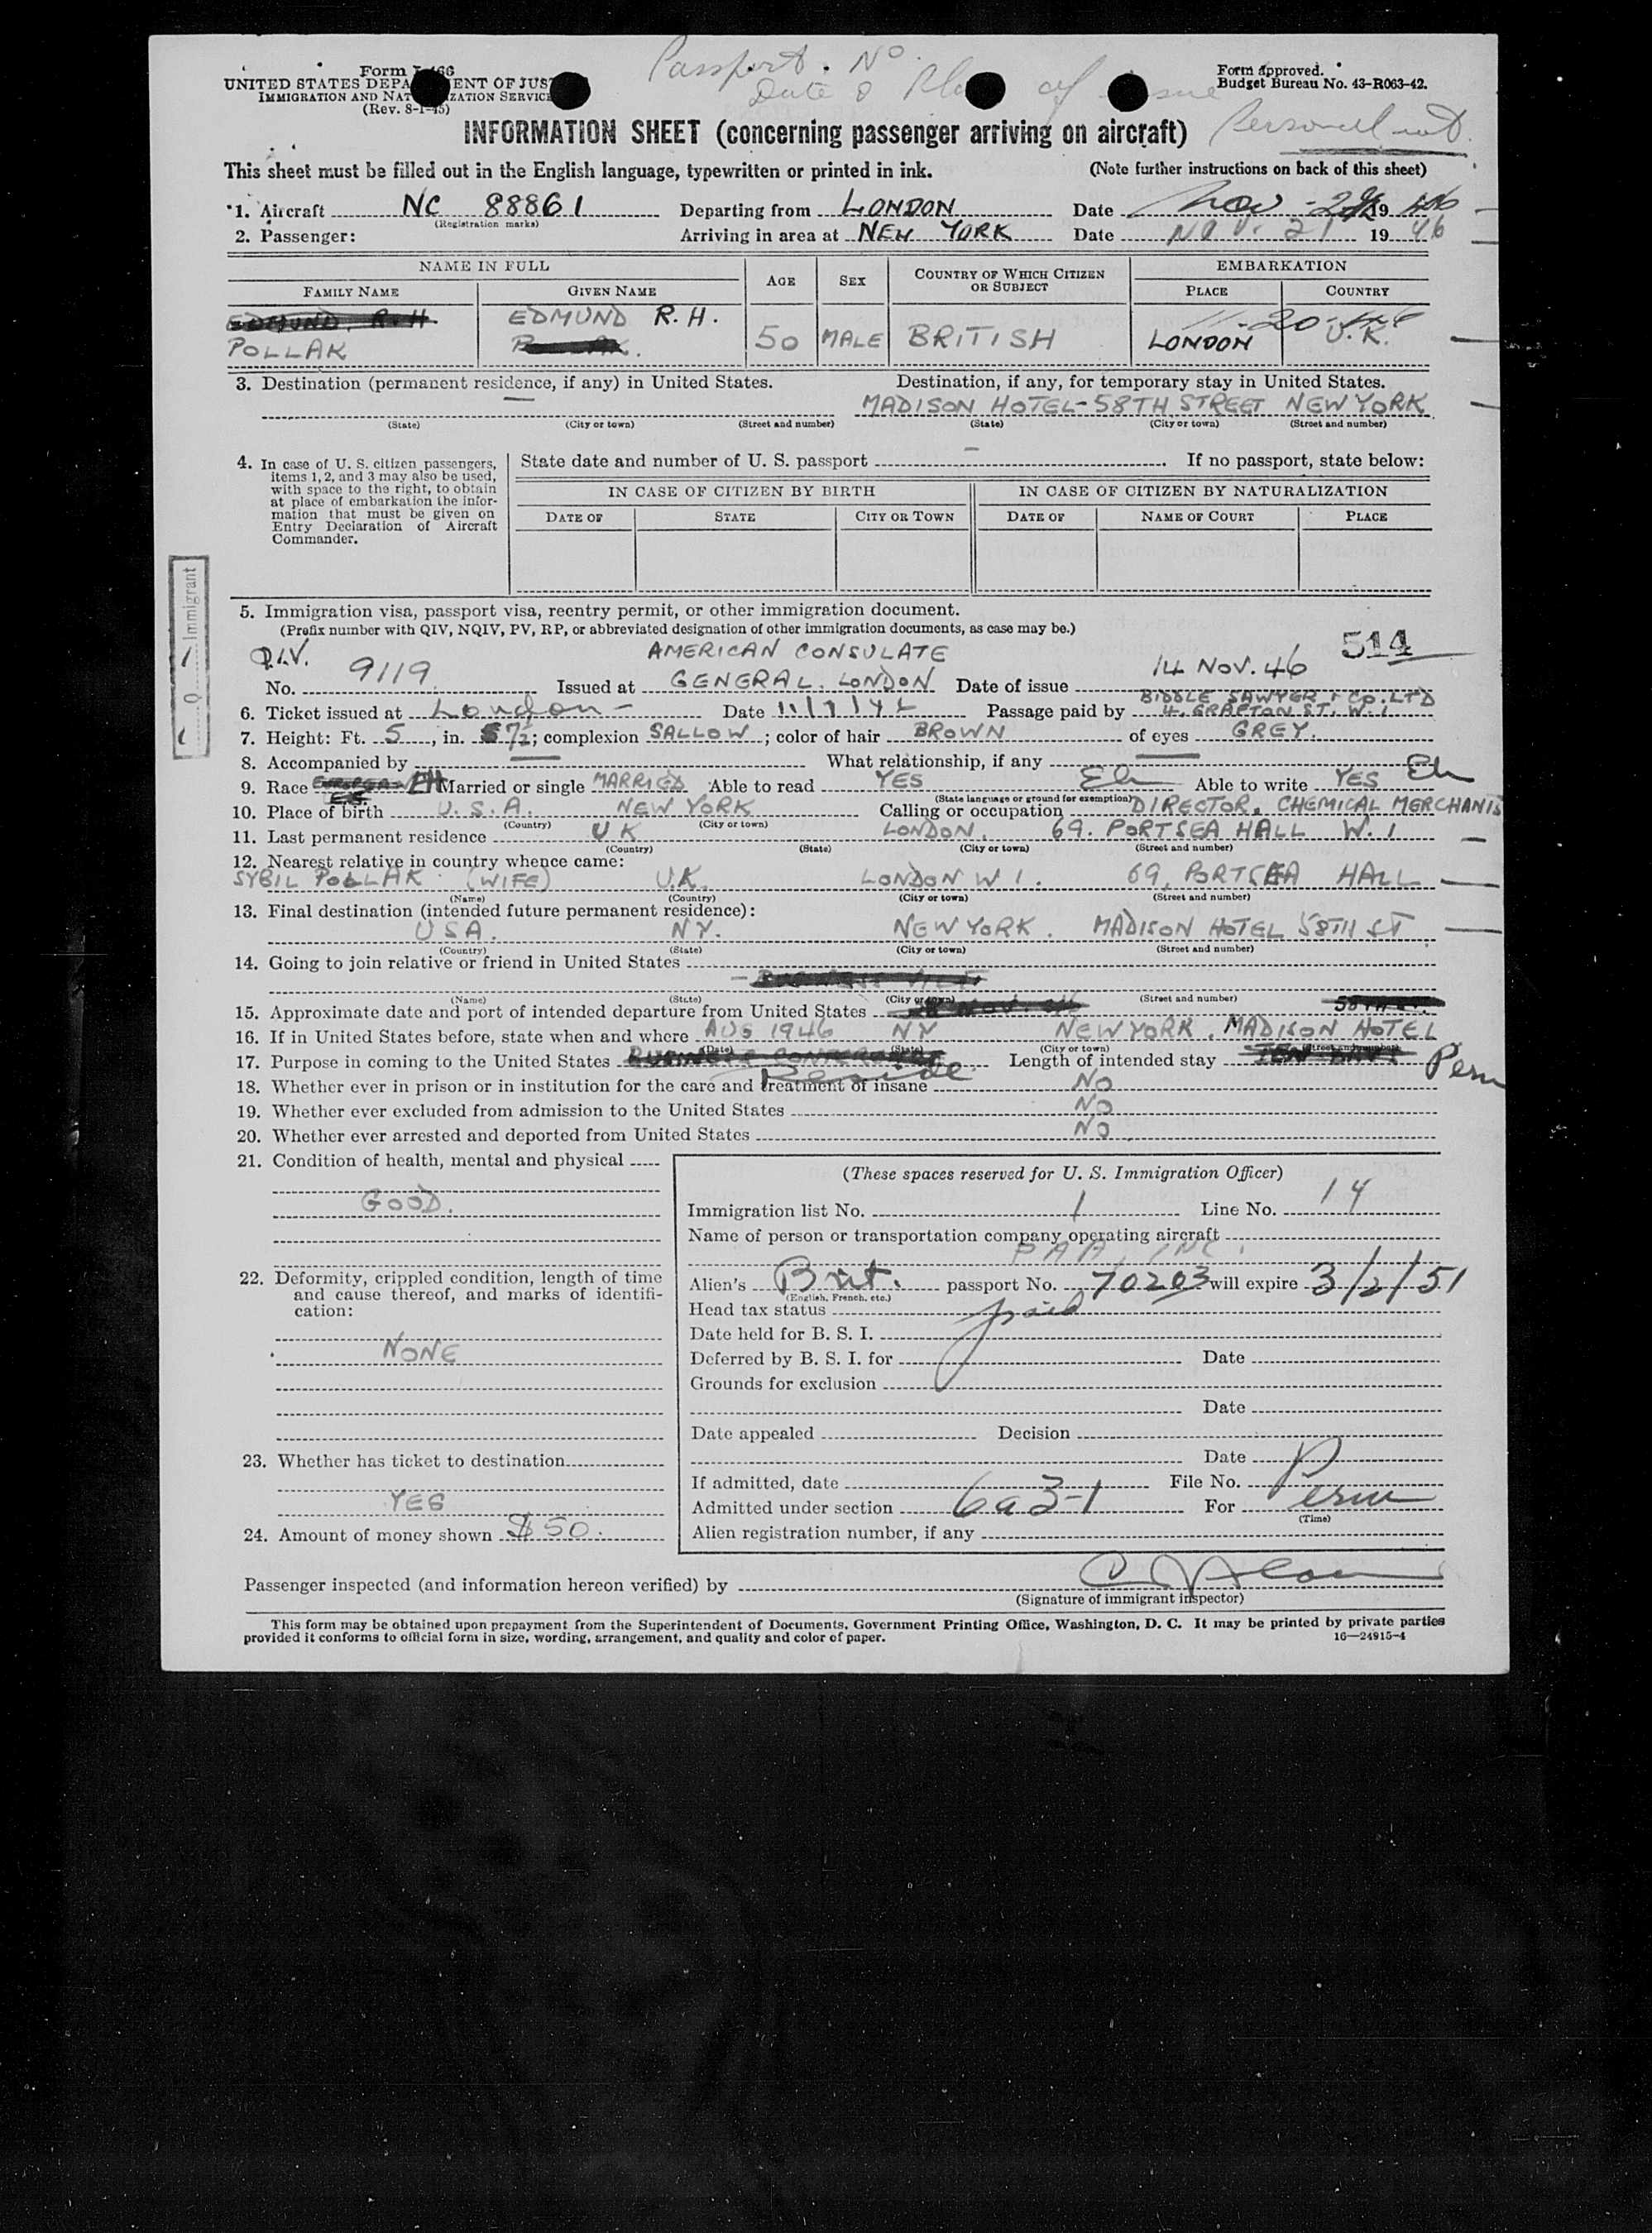 Passport. No.
Form I-466
UNITED STATES DEPA ENT OF JUS
IMMIGRATION AND NAT IZATION SERVICE
(Rev. 8-1-45)
Date & Pla of sue
Form approved.
Budget Bureau No. 43-R063-42.
INFORMATION SHEET (concerning passenger arriving on aircraft)
This sheet must be filled out in the English language, typewritten or printed in ink. (Note further instructions on back of this sheet)
1. Aircraft NC 88861 Departing from LONDON Date Nov 19 46
(Registration marks)
2. Passenger: Arriving in area at NEW YORK Date NOV. 21 19 46
NAME IN FULL AGE SEX COUNTRY OF WHICH CITIZEN OR SUBJECT EMBARKATION
FAMILY NAME GIVEN NAME PLACE COUNTRY
EDMUND. R.H. EDMUND R.H. 11-20-46
POLLAK POLLAK. 50 MALE BRITISH LONDON U.K.
3. Destination (permanent residence, if any) in United States. Destination, if any, for temporary stay in United States.
MADISON HOTEL-58TH STREET NEW YORK
(State) (City or town) (Street and number) (State) (City or town) (Street and number)
4. In case of U. S. citizen passengers, items 1, 2, and 3 may also be used, with space to the right, to obtain at place of embarkation the information that must be given on Entry Declaration of Aircraft Commander.
State date and number of U. S. passport - If no passport, state below:
IN CASE OF CITIZEN BY BIRTH IN CASE OF CITIZEN BY NATURALIZATION
DATE OF STATE CITY OR TOWN DATE OF NAME OF COURT PLACE
Immigrant
5. Immigration visa, passport visa, reentry permit, or other immigration document.
(Prefix number with QIV, NQIV, PV, RP, or abbreviated designation of other immigration documents, as case may be.)
514
Q.I.V. AMERICAN CONSULATE
No. 9119 Issued at GENERAL. LONDON Date of issue 14 NOV. 46
BIDDLE SAWYER & CO. LTD
6. Ticket issued at London - Date Passage paid by 4. GRAFTON ST. W.1
7. Height: Ft. 5, in. 7½; complexion SALLOW; color of hair BROWN of eyes GREY.
8. Accompanied by — What relationship, if any —
9. Race EUROPEAN EH Married or single MARRIED Able to read YES Eh Able to write YES Eh
(State language or ground for exemption)
10. Place of birth U.S.A. NEW YORK Calling or occupation DIRECTOR, CHEMICAL MERCHANTS
(Country) (City or town)
11. Last permanent residence UK LONDON. 69. PORTSEA HALL W.1
(Country) (State) (City or town) (Street and number)
12. Nearest relative in country whence came:
SYBIL POLLAK (WIFE) U.K. LONDON W1. 69, PORTSEA HALL
(Name) (Country) (City or town) (Street and number)
13. Final destination (intended future permanent residence):
USA. NY. NEW YORK. MADISON HOTEL 58TH ST
(Country) (State) (City or town) (Street and number)
14. Going to join relative or friend in United States
(Name) (State) (City or town) (Street and number)
15. Approximate date and port of intended departure from United States NOV. 46 58TH ST.
16. If in United States before, state when and where AUG 1946 NY NEW YORK. MADISON HOTEL
(Date) (State) (City or town) (Street and number)
17. Purpose in coming to the United States BUSINESS CONFERENCE Reside Length of intended stay TEN DAYS Perm
18. Whether ever in prison or in institution for the care and treatment of insane NO
19. Whether ever excluded from admission to the United States NO
20. Whether ever arrested and deported from United States NO
21. Condition of health, mental and physical
GOOD.
22. Deformity, crippled condition, length of time and cause thereof, and marks of identification:
NONE
23. Whether has ticket to destination
YES
24. Amount of money shown $50.
(These spaces reserved for U. S. Immigration Officer)
Immigration list No. 1 Line No. 14
Name of person or transportation company operating aircraft
PAA, INC.
Alien's Brit. passport No. 70203 will expire 3/2/51
(English, French, etc.)
Head tax status paid
Date held for B. S. I.
Deferred by B. S. I. for Date
Grounds for exclusion
Date
Date appealed Decision
Date
If admitted, date File No.
Admitted under section 6a3-1 For Perm
(Time)
Alien registration number, if any
Passenger inspected (and information hereon verified) by
(Signature of immigrant inspector)
This form may be obtained upon prepayment from the Superintendent of Documents, Government Printing Office, Washington, D. C. It may be printed by private parties
provided it conforms to official form in size, wording, arrangement, and quality and color of paper. 16—24915-4